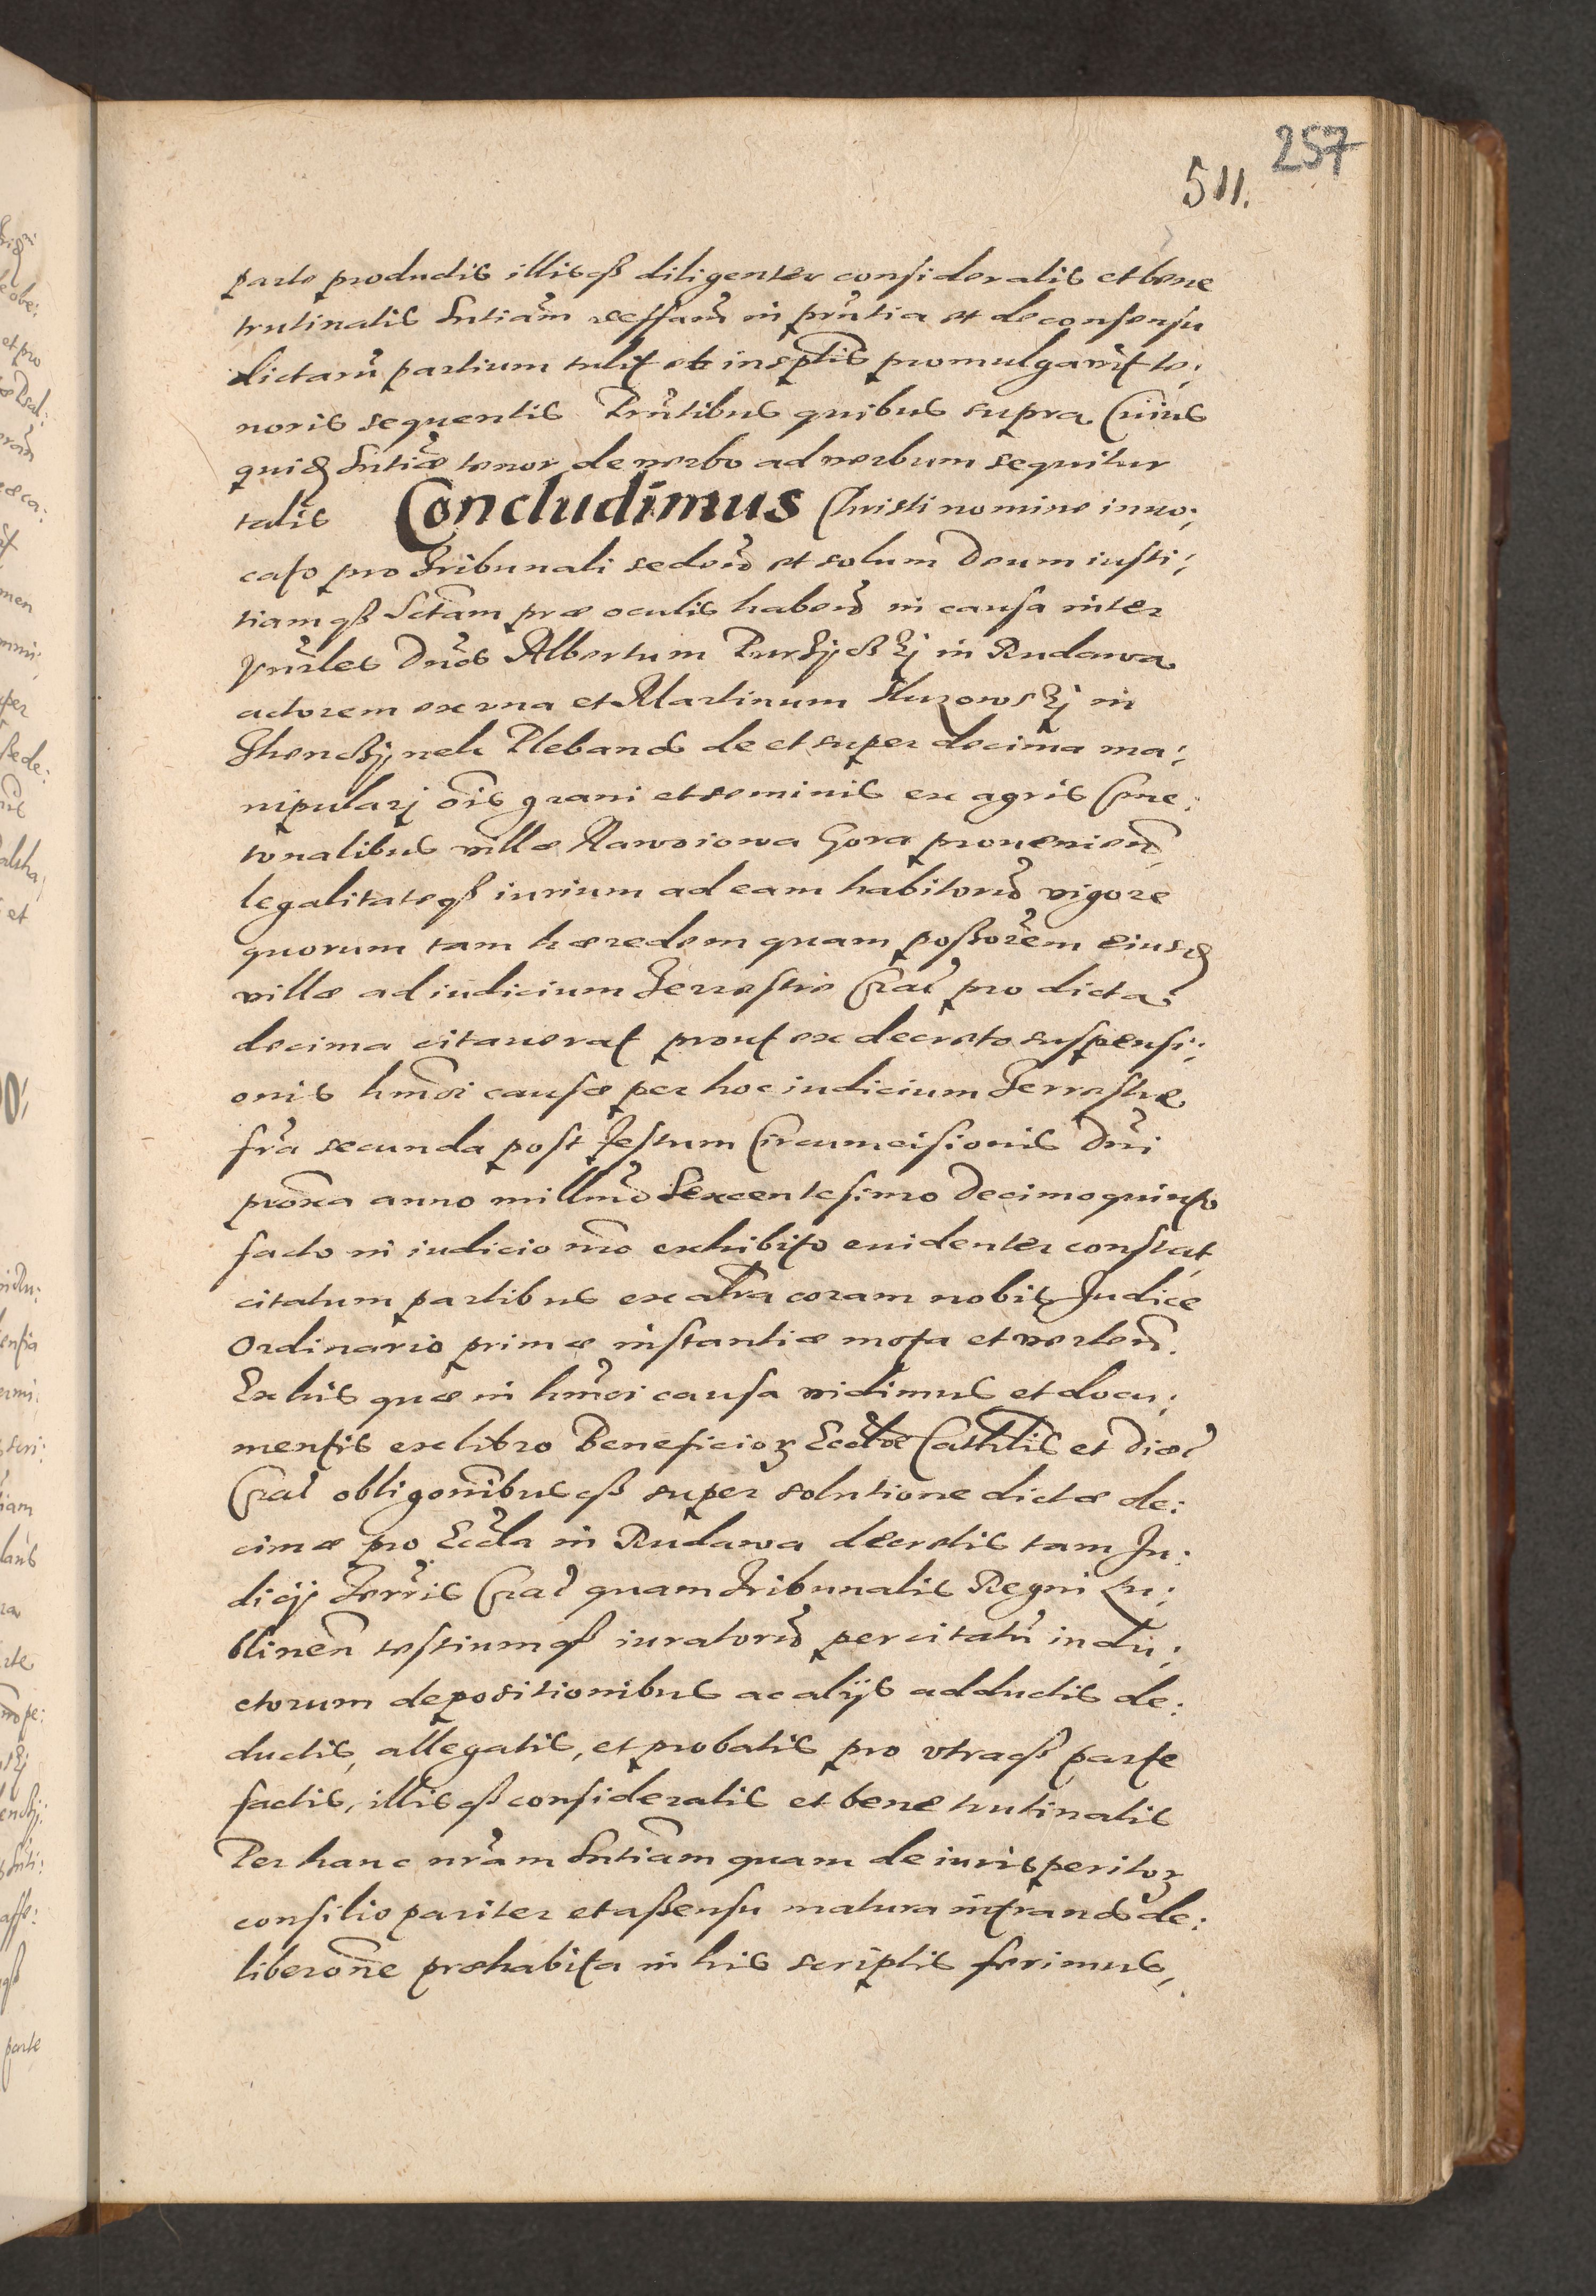 257
511.
parte productis illisq̃ diligenter consideratis et bene
trutinatis Sntiam in pr̃ntia et de consensu
dictarũ partium tulit et in sc̃ptis promulgavit te:
noris sequentis Pr̃ntibus quibus supra Cuius
quid̃ Sntiæ tenor de verbo ad verbum sequitur
talis Concludimus Christi nomine invo:
cato pro Tribunali seden̄ et solum Deum iusti:
tiamq̃ Sctam præ oculis haben̄ in causa inter
Dños Albertum in Rudawa
actorem ex una et Martinum in
Plebanos de et super decima ma:
nipulari oı̃s grani et seminis ex agris Cme:
tonalibus villæ Gora provenien̄
legalitateq̃ iurium ad eam habitorũ vigore
quorum tam hæredem quam poss̃orem eiusd̃
villæ ad iudicium Terrestre Crac̃ pro dicta
decima citaverat prout ex decreto suspensi:
onis hm̃oi causæ per hoc iudicium Terrestre
fr̃a secunda post festum Circumcisionis Dñi
prox̃a anno millm̃o Sexcentesimo Decimoquinto
facto in iudicio nr̃o exhibito evidenter constat
citatum partibus ex alt̃ra coram nobis Judice
Ordinario primæ instantiæ mota et verten̄.
Ex his quæ in hm̃oi causa vidimus et docu:
mentis ex libro Beneficioꝝ Eccl̃iæ Cathlis et Diæc̃
Crac̃ obligõnibusq̃ super solutione dictæ de:
cimæ pro Eccl̃a in Rudawa decretis tam Ju:
dicij Terrĩs Crac̃ quam Tribunalis Regni Lu:
blinen̄ testiumq̃ iuratorũ per citatũ indu:
ctorum depositionibus ac alijs adductis de:
ductis, allegatis, et probatis pro utraq̃ parte
factis, illisq̃ consideratis et bene trutinatis
Per hanc nr̃am Sntiam quam de iurisperitoꝝ
consilio pariter et assensu matura intrand̃ de:
liberõne præhabita in his scriptis ferimus,